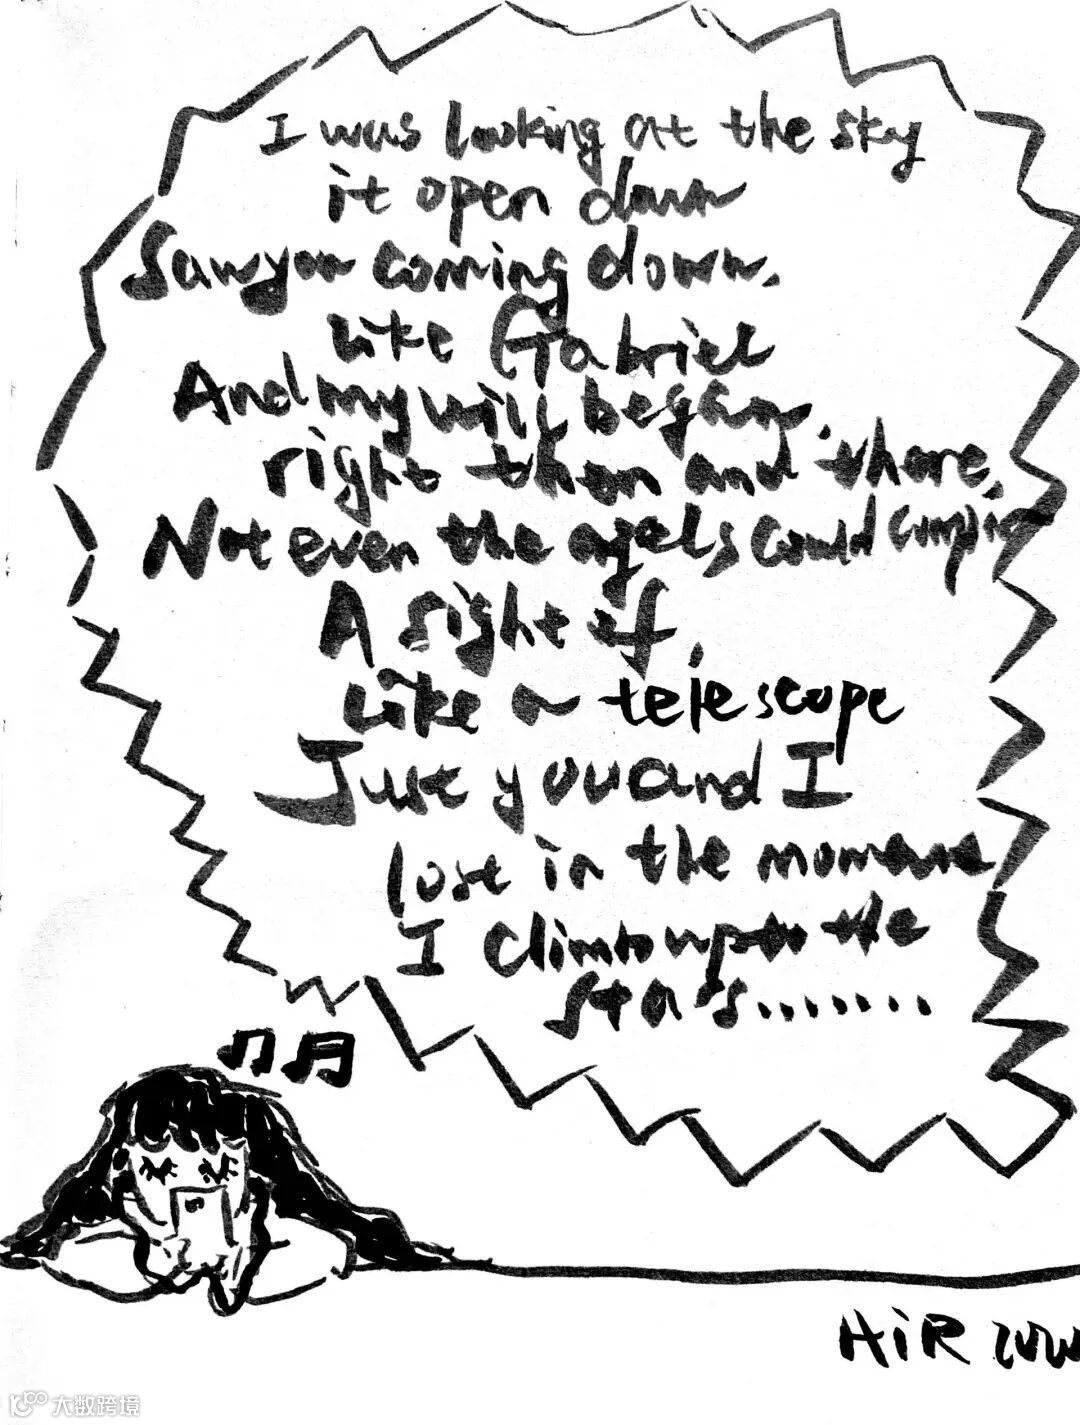 I was looking at the sky
it open down
Saw you coming down,
like Gabriel
And my will began
right then and there,
Not even the agels could
A sight of,
like a telescope
Just you and I
lost in the moment
I climb up to the
stars.......
HiR
大数跨境